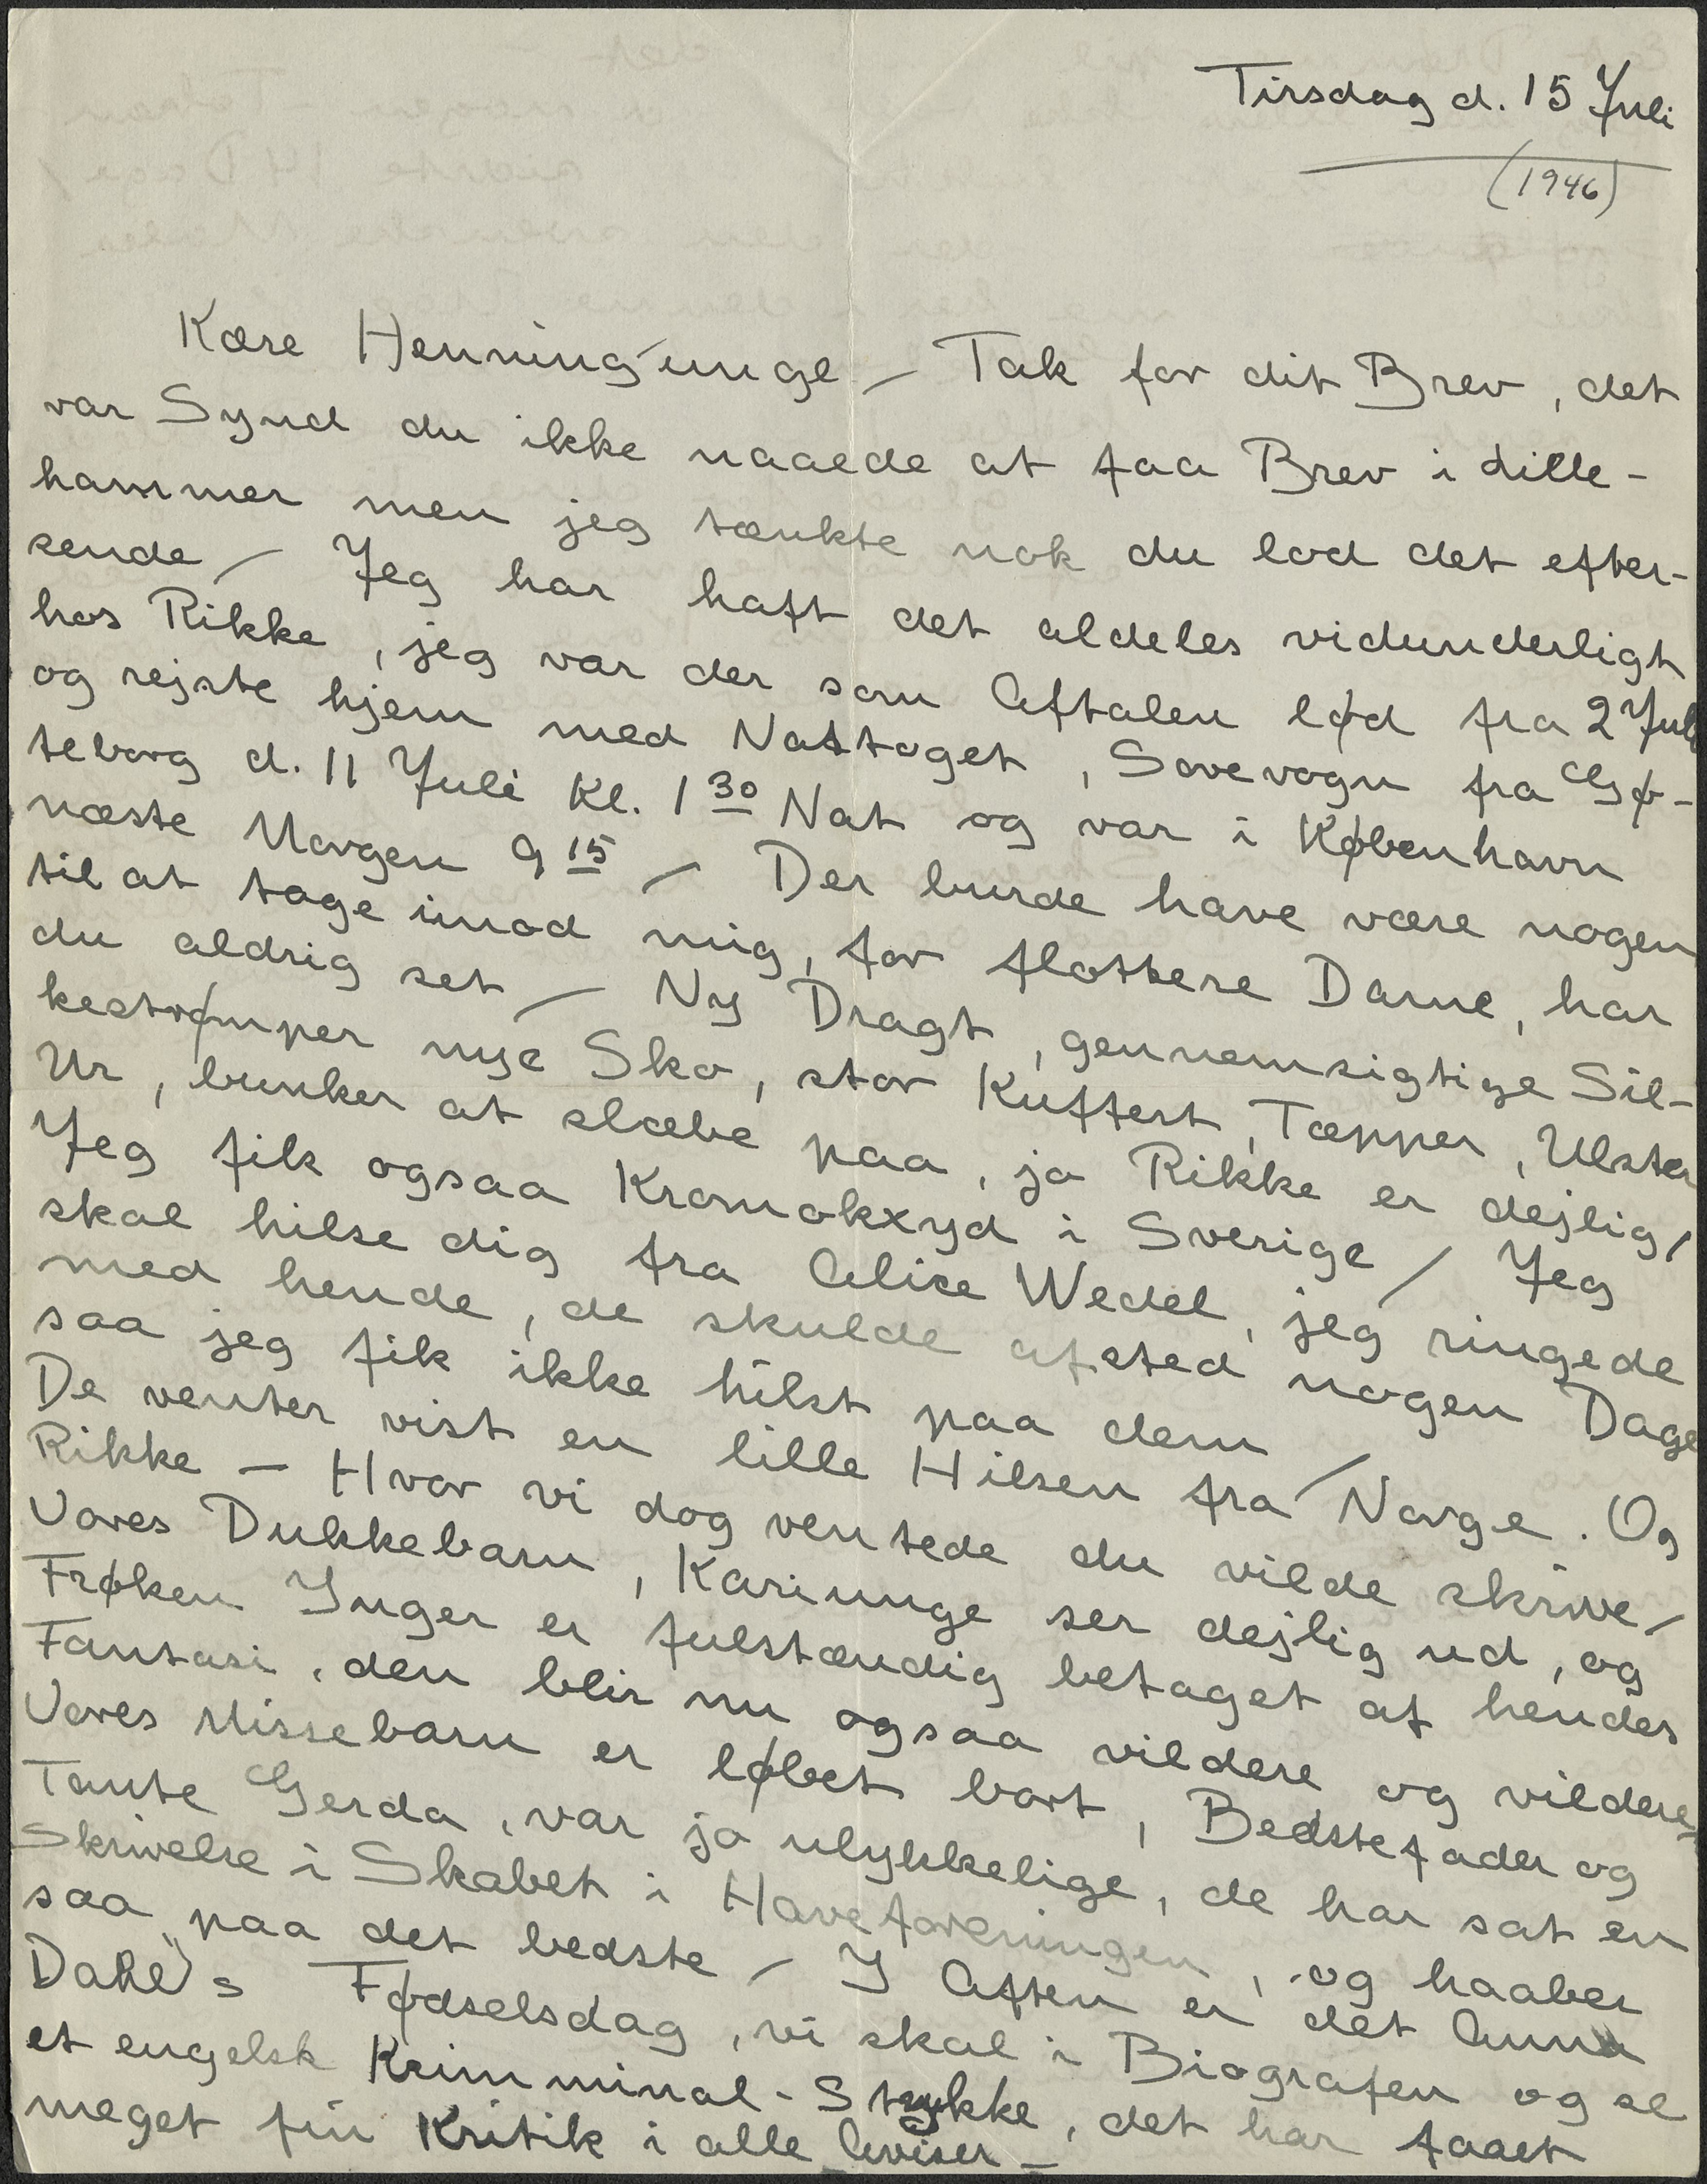 Tirsdag d. 15 Juli
(1946)
Kære Henning'unge – Tak for dit Brev, det
var Synd du ikke naaede at faa Brev i Lille-
hammer men jeg tænkte nok du lod det efter-
sende – Jeg har haft det aldeles vidunderligt
hos Rikke, jeg var der som Aftalen lød fra 2 Juli
og rejste hjem med Nattoget, Sovevogn fra Gø-
teborg d. 11 Juli Kl. 1 30 Nat og var i København
næste Morgen 9 15 – Der burde have være nogen
til at tage imod mig, for flottere Dame, har
du aldrig set – Ny Dragt, gennemsigtige Sil-
kestrømper nye Sko, stor Kuffert, Tæpper, Ulster
Ur, bunker at slæbe paa, ja Rikke er dejlig,
Jeg fik ogsaa Kromokxyd i Sverige / Jeg
skal hilse dig fra Alice Wedel, jeg ringede
med hende, de skulde afsted nogen Dage
saa jeg fik ikke hilst paa dem –
De venter vist en lille Hilsen fra Norge. Og
Rikke – Hvor vi dog ventede du vilde skrive –
Vores Dukkebarn, Karinunge ser dejlig ud, og
Frøken Inger er fulstændig betaget af hendes
Fantasi, den blir nu ogsaa vildere og vildere –
Vores Missebarn er løbet bort, Bedstefader og
Tante Gerda, var ja ulykkelige, de har sat en
Skrivelse i Skabet i Haveforeningen, og haaber
saa paa det bedste – I Aften er det Anna
Dahl's Fødselsdag, vi skal i Biografen og se
et engelsk Krimminal-Stykke, det har faaet
meget fin Kritik i alle Aviser –